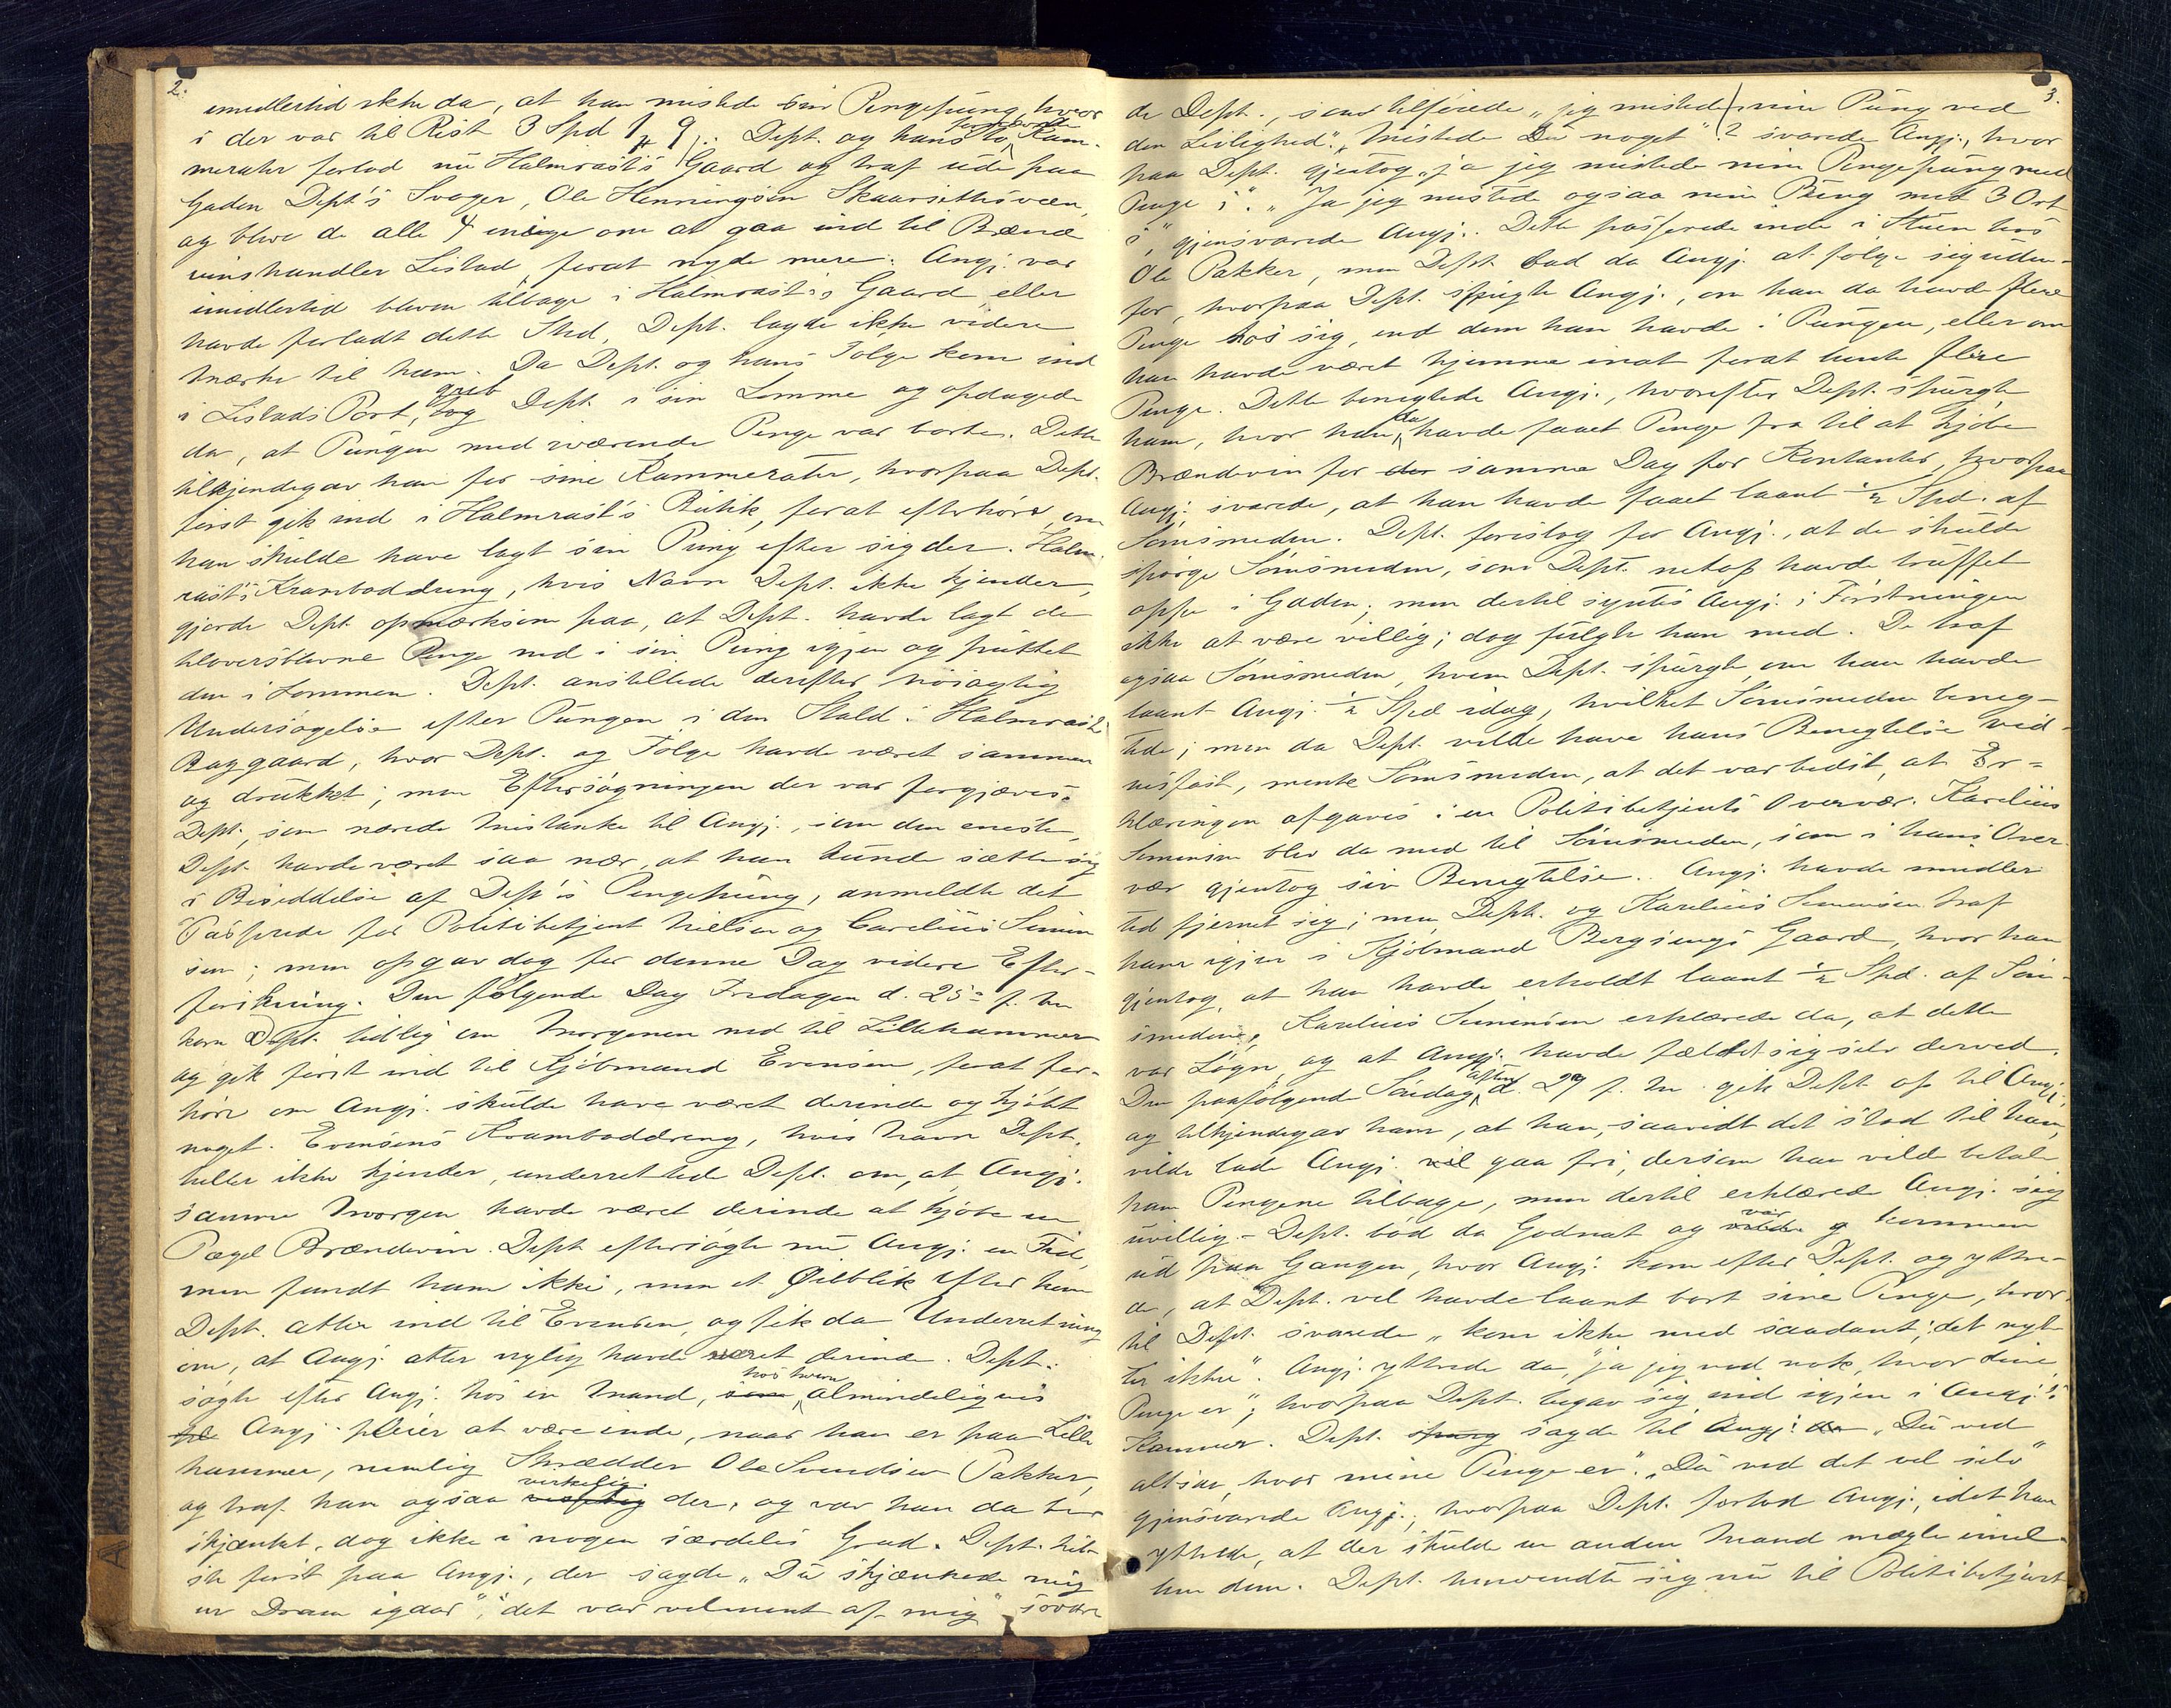 2.
imidlertid ikke da, at han mistede sin Pengepung, hvor
i der var til Rest 3 Spd 1 # 9 /. Dept. og hans to Kam-
merater forlod nu Halmrast's Gaard og traf ude paa
Gaden Dept's Svoger, Ole Henningsen Skaarsethsveen,
og bleve de alle 4 enige om at gaa ind til Brænd
vinshandler Listad, forat nyde mere. Angj. var
imidlertid bleven tilbage i Halmrast's Gaard eller
havde forladt dette Sted, Dept. lagde ikke videre
Mærke til ham. Da Dept. og hans Følge kom ind
i Listads Port, tog greb Dept. i sin Lomme og opdagede
da, at Pungen med iværende Penge var borte. Dette
tilkjendegav han for sine Kammerater, hvorpaa Dept.
først gik ind i Halmrast's Butik, forat efterhøre, om
han skulde have lagt sin Pung efter sig der. Halm-
rast's Kramboddreng, hvis Navn Dept. ikke kjender,
gjorde Dept. opmærksom paa, at Dept. havde lagt de
tiloversblevne Penge ned i sin Pung igjen og puttet
den i Lommen. Dept. anstillede derefter nøiagtig
Undersøgelse efter Pungen i den Stald i Halmrasts
Baggaard, hvor Dept. og Følge havde været sammen
og drukket; men Eftersøgningen der var forgjæves.
Dept., som nærede Mistanke til Angj., som den eneste,
Dept. havde været saa nær, at han kunde sætte sig
i Besiddelse af Dept's Pengepung, anmeldte det
Passerede for Politibetjent Nielsen og Carelius Simen
sen; men opgav dog for denne Dag videre Efter-
forskning. Den følgende Dag Fredagen d. 25de f. M.
kom Dept. tidlig om Morgenen ned til Lillehammer
og gik først ind til Kjøbmand Evensen, forat for-
høre om Angj. skulde have været derinde og kjøbt
noget. Evensens Kramboddreng, hvis Navn Dept.
heller ikke kjender, underrettede Dept. om, at Angj.
samme Morgen havde været derinde at kjøbe en
Pægel Brændevin. Dept. eftersøgte nu Angj. en Tid,
men fandt ham ikke, men et Øieblik efter kom
Dept. atter ind til Evensen, og fik da Underretning
om, at Angj. atter nylig havde været derinde. Dept.
søgte efter Angj. hos en Mand, som hos hvem almindeligvis
Angj. pleier at være inde, naar han er paa Lille
hammer, nemlig Skrædder Ole Svendsen Pakker,
og traf han ogsaa virkelig der, og var han da be
skjænket, dog ikke i nogen særdeles Grad. Dept. hil-
ste først paa Angj., der sagde "Du skjænkede mig
en Dram igaar", "det var velment af mig" svare
3.
de Dept., som tilføiede "jeg mistede min Pung ved
den Leilighed". "Mistede Du noget"? svarede Angj., hvor
paa Dept. gjentog "ja jeg mistede min Pengepung med
Penge i". "Ja jeg mistede ogsaa min Pung med 3 Ort
i," gjensvarede Angj.. Dette passerede inde i Stuen hos
Ole Pakker, men Dept. bad da Angj. at følge sig uden-
for, hvorpaa Dept. spurgte Angj., om han da havde flere
Penge hos sig, end dem han havde i Pungen, eller om
han havde været hjemme inat forat hente flere
Penge. Dette benegtede Angj., hvorefter Dept. spurgte
ham, hvor han da havde faaet Penge fra til at kjøbe
Brændevin for samme Dag for Kontanter, hvorpaa
Angj. svarede, at han havde faaet laant ½ Spd. af
Sømsmeden. Dept. foreslog for Angj., at de skulde
spørge Sømsmeden, som Dept. netop havde truffet
oppe i Gaden; men dertil syntes Angj. i Førstningen
ikke at være villig; dog fulgte han med. De traf
ogsaa Sømsmeden, hvem Dept. spurgte, om han havde
laant Angj. ½ Spd idag, hvilket Sømsmeden beneg-
tede; men da Dept. vilde have hans Benegtelse vid-
nefast, mente Sømsmeden, at det var bedst, at Er-
klæringen afgaves i en Politibetjents Overvær. Karelius
Simensen blev da med til Sømsmeden, som i hans Over-
vær gjentog sin Benegtelse. Angj. havde imidler
tid fjernet sig; men Dept. og Karelius Simensen traf
ham igjen i Kjøbmand Bergsengs Gaard, hvor han
gjentog, at han havde erholdt laant ½ Spd. af Søm-
smeden, Karelius Simensen erklærede da, at dette
var Løgn, og at Angj. havde fældet sig selv derved.
Den paafølgende Søndag aften d. 27 f. M. gik Dept. op til Angj.,
og tilkjendegav ham, at han, saavidt det stod til ham,
vilde lade Angj. gaa fri, dersom han vilde betale
ham Pengene tilbage, men dertil erklærede Angj. sig
uvillig. – Dept. bød da Godnat og var kommen
ud paa Gangen, hvor Angj. kom efter Dept. og yttre-
de, at Dept. vel havde laant bort sine Penge, hvor
til Dept. svarede "kom ikke med saadant; det nyt
ter ikke". Angj. yttrede da, "ja jeg ved nok, hvor dine
Penge er", hvorpaa Dept. begav sig ind igjen i Angj.'s
Kammer. Dept. sagde til Angj. "Du ved
altsaa, hvor mine Penge er". "Du ved det vel selv"
gjensvarede Angj., hvorpaa Dept. forlod Angj., idet han
yttrede, at der skulde en anden Mand mægle imel-
lem dem. Dept. henvendte sig nu til Politibetjent